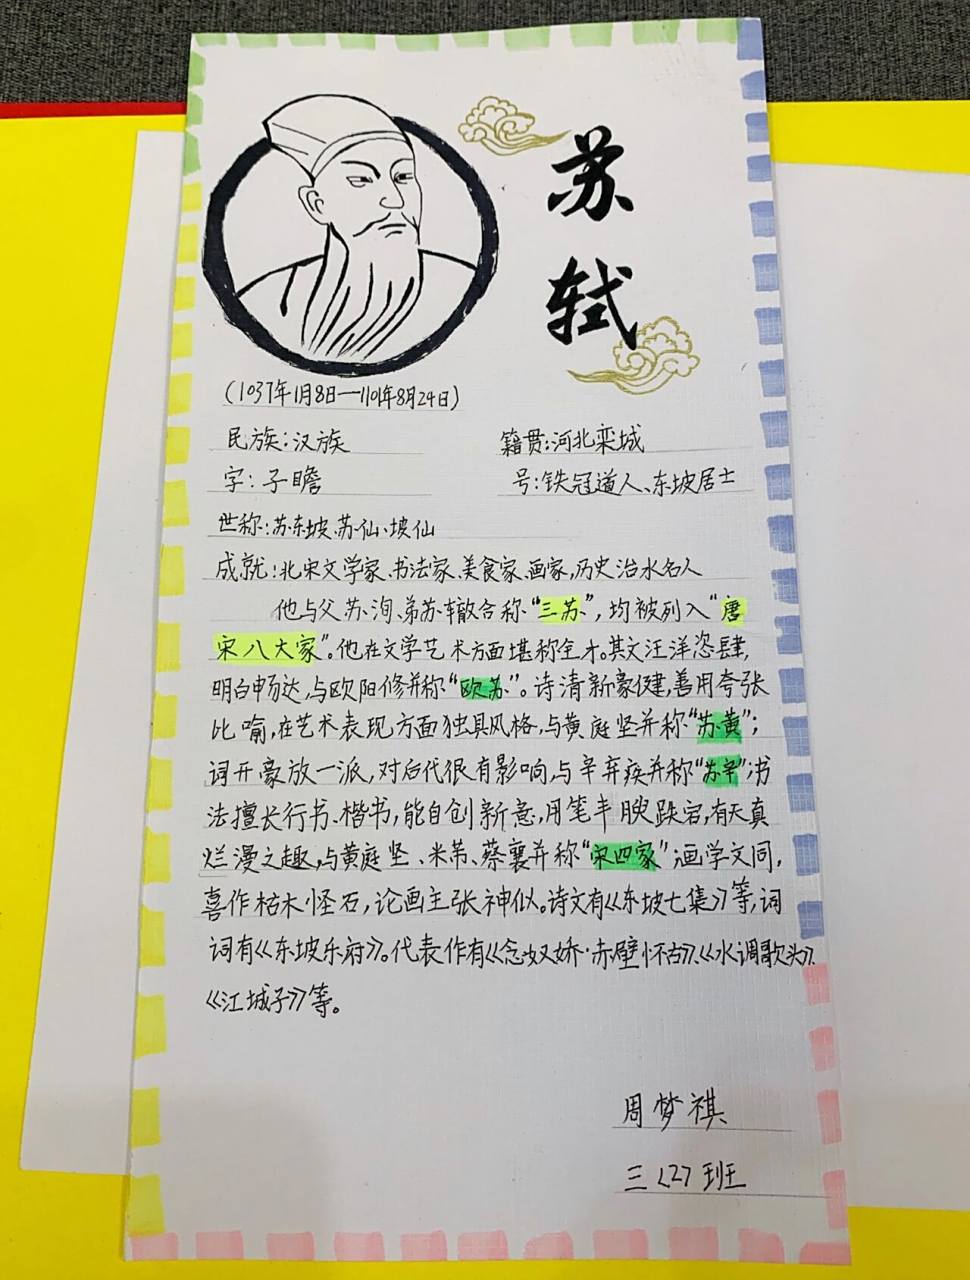 苏
轼
(1037年1月8日—1101年8月24日)
民族:汉族 籍贯:河北栾城
字:子瞻 号:铁冠道人、东坡居士
世称:苏东坡、苏仙、坡仙
成就:北宋文学家、书法家、美食家、画家,历史治水名人
他与父苏洵、弟苏辙合称“三苏”,均被列入“唐
宋八大家”。他在文学艺术方面堪称全才。其文汪洋恣肆,
明白畅达,与欧阳修并称“欧苏”。诗清新豪健,善用夸张
比喻,在艺术表现方面独具风格,与黄庭坚并称“苏黄”;
词开豪放一派,对后代很有影响,与辛弃疾并称“苏辛”;书
法擅长行书、楷书,能自创新意,用笔丰腴跌宕,有天真
烂漫之趣,与黄庭坚、米芾、蔡襄并称“宋四家”;画学文同,
喜作枯木怪石,论画主张神似。诗文有《东坡七集》等,词
词有《东坡乐府》。代表作有《念奴娇·赤壁怀古》、《水调歌头》、
《江城子》等。
周梦祺
三<2>班